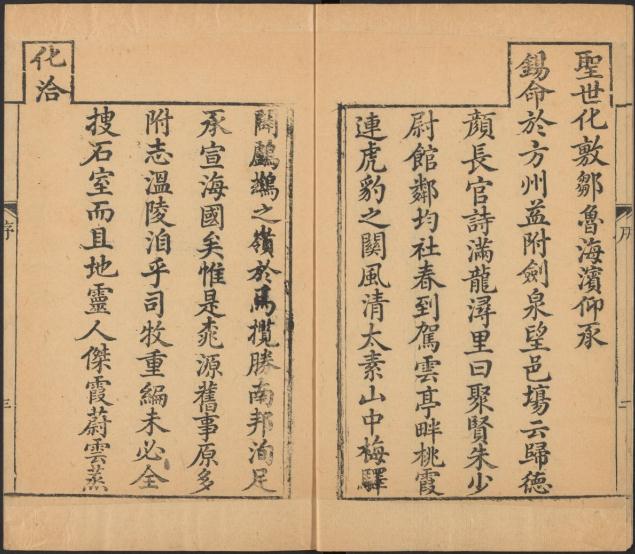 聖世化敦鄒魯海濱仰承
錫命於方州益附劍泉望邑塲云歸德
顏長官詩滿龍潯里曰聚賢朱少
尉館鄰均社春到駕雲亭畔桃霞
連虎豹之關風清太素山中梅驛
開鸕鷀之嶺於馬攬勝南邦洵足
承宣海國矣惟是桃源舊事原多
附志溫陵洎乎司牧重編未必全
搜石室而且地靈人傑霞蔚雲蒸
化洽
序
三
二